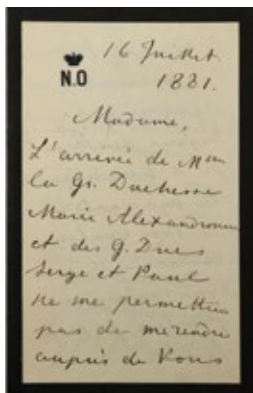 16 Juillet
N.O
1881.
Madame,
L'arrivée de Mme
la Gr. Duchesse
Marie Alexandrowna
et des G. Ducs
Serge et Paul
ne me permettra
pas de me rendre
auprès de Vous